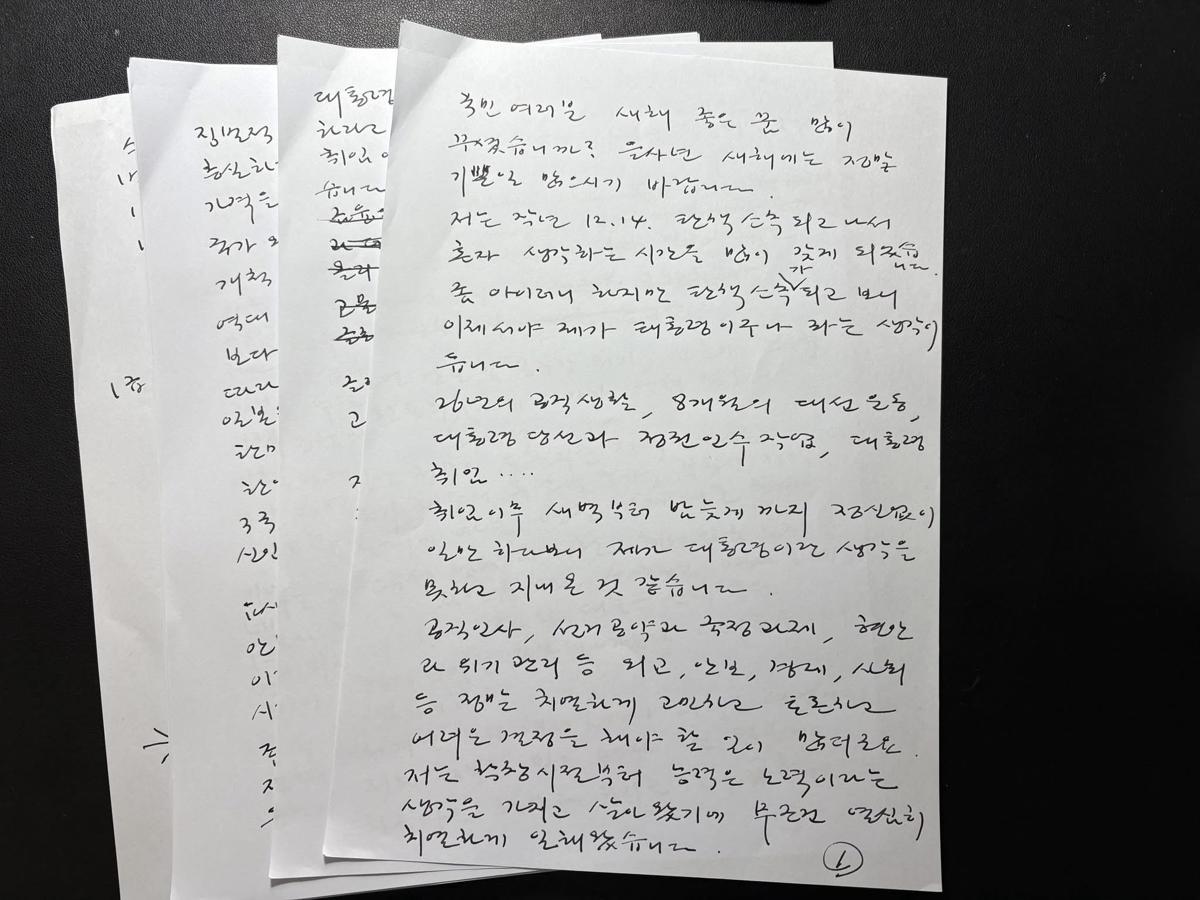 국민 여러분 새해 좋은 꿈 많이
꾸셨습니까? 을사년 새해에는 정말
기쁜일 많으시기 바랍니다.
저는 작년 12.14. 탄핵 소추 되고 나서
혼자 생각하는 시간을 많이 갖게 되었습니다.
좀 아이러니 하지만 탄핵 소추가 되고 보니
이제서야 제가 대통령이구나 라는 생각이
듭니다.
26년의 공직 생활, 8개월의 대선 운동,
대통령 당선과 정권 인수 작업, 대통령
취임....
취임이후 새벽부터 밤늦게 까지 정신없이
일만 하다보니 제가 대통령이란 생각을
못하고 지내 온 것 같습니다.
공직인사, 선거 공약과 국정 과제, 현안
과 위기 관리 등 외교, 안보, 경제, 사회
등 정말 치열하게 고민하고 토론하고
어려운 결정을 해야 할 일이 많더군요.
저는 학창시절부터 능력은 노력이라는
생각을 가지고 살아 왔기에 무조건 열심히
치열하게 일해왔습니다.
1
대통령
하라고
취임
습니다
고
징벌적
충실하
가격을
국가
개척
역대
보다
따라
일본
한미
3국